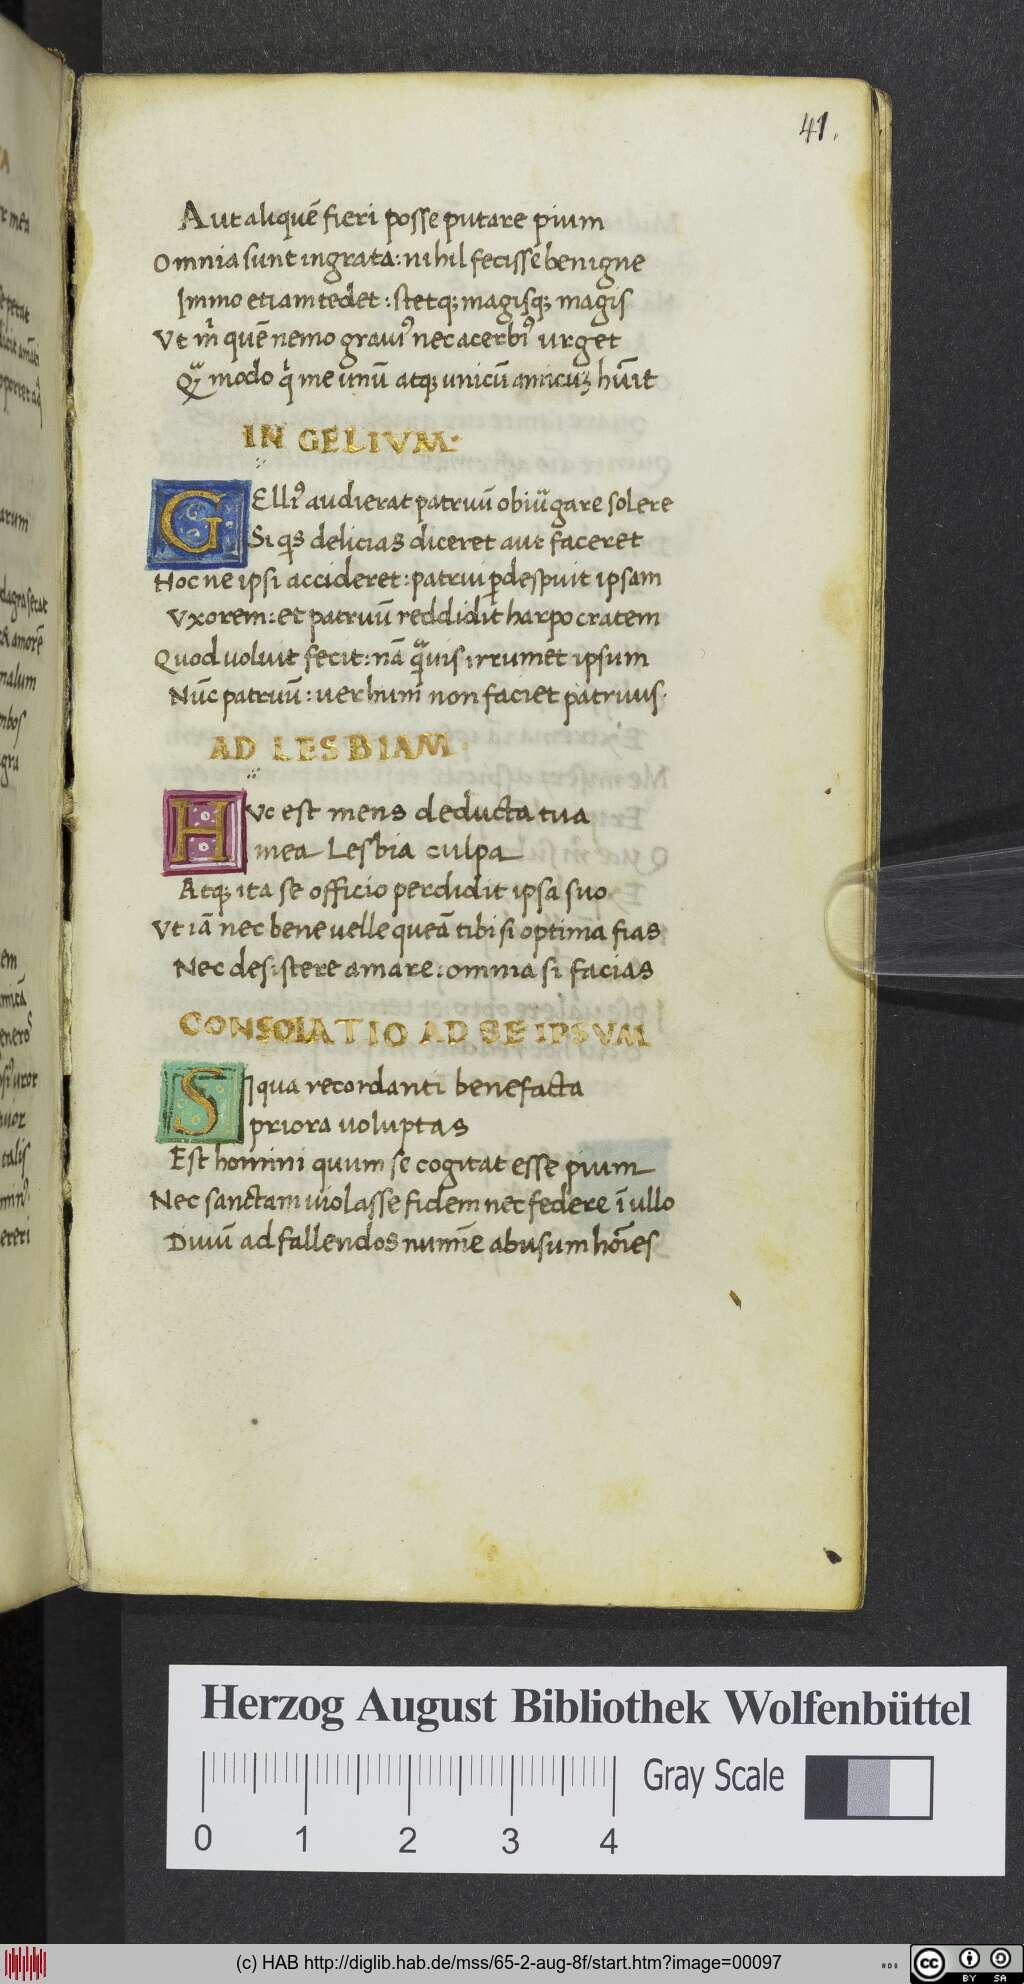 41.
Aut aliquē fieri posse putare pium
Omnia sunt ingrata: nihil fecisse benigne
Immo etiam tedet: stetq; magisq; magis
Vt m̄ quē nemo graui' nec acerbi' urget
modo me unū atq; unicū amicuz hūit
IN GELIVM:
GElli' audierat patruū obiurgare solere
Si qs delicias diceret aut faceret
Hoc ne ipsi accideret: patrui pdespuit ipsam
Vxorem: et patruū reddidit harpocratem
Quod uoluit fecit: nā quis irrumet ipsum
Nūc patruū: uerbum non faciet patruus.
AD LESBIAM.
HVc est mens deducta tua
mea Lesbia culpa
Atq; ita se officio perdidit ipsa suo
Vt iā nec bene uelle queā tibi si optima fias
Nec desistere amare: omnia si facias
CONSOLATIO AD SE IPSVM
SIqua recordanti benefacta
priora voluptas
Est homini quum se cogitat esse pium
Nec sanctam uiolasse fidem nec federe ī ullo
Diuū ad fallendos numīe abusum hōies
Herzog August Bibliothek Wolfenbüttel
Gray Scale
0 1 2 3 4
(c) HAB http://diglib.hab.de/mss/65-2-aug-8f/start.htm?image=00097
cc BY SA